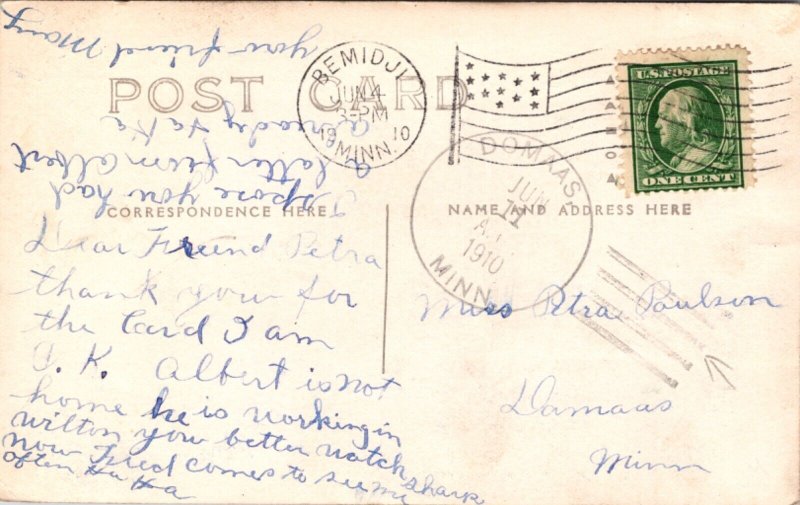 POST CARD
BEMIDJI
JUN 4
3-PM
1910
MINN.
U.S. POSTAGE
ONE CENT
DOMAAS,
JUN
11
A.
1910
MINN.
CORRESPONDENCE HERE
NAME AND ADDRESS HERE
Dear Freind Petra
thank your for
the Card I am
O.K. Albert is not
home he is working in
wilton your better watch
now Fried comes to see me
often Ha Ha
I spose you had
a letter from albert
already Ha Ha
your friend Mary
Miss Petra Paulson
Damaas
Minn